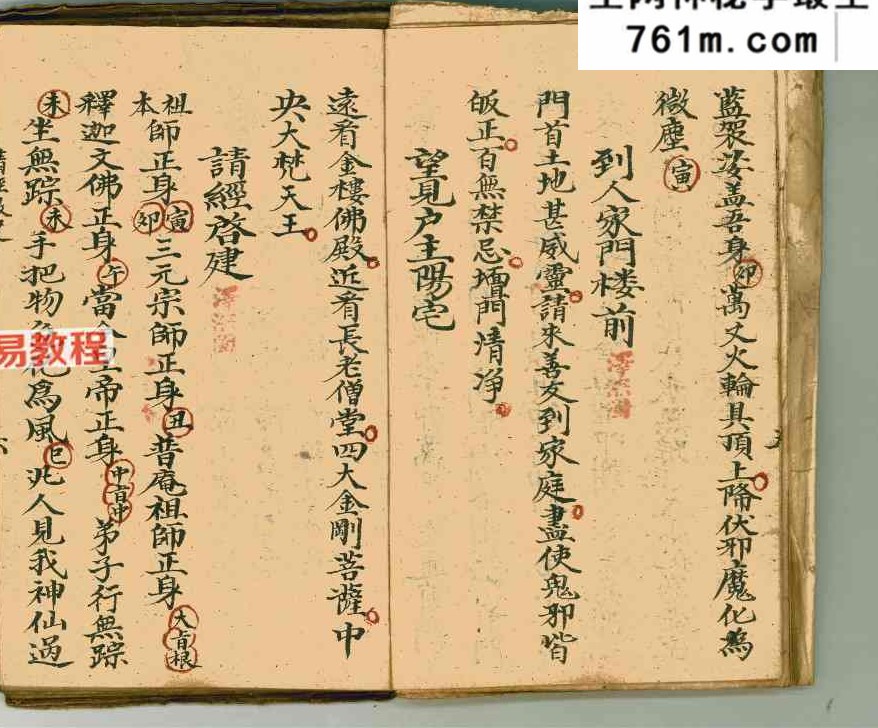 761m.com
藍袈娑盖吾身卯萬丈火輪具頂上降伏邪魔化為
微塵寅
到人家門楼前
門首土地甚威靈請來善友到家庭盡使鬼邪皆
皈正百無禁忌壇門清净
望見户主陽宅
遠看金樓佛殿近看長老僧堂四大金剛菩薩中
央大梵天王
請經啓建
祖本師正身寅卯三元宗師正身丑普庵祖師正身大肓根
釋迦文佛正身午當今皇帝正身中肓中弟子行無踪
未坐無踪未手把物件化為風巳兆人見我神仙過
易教程